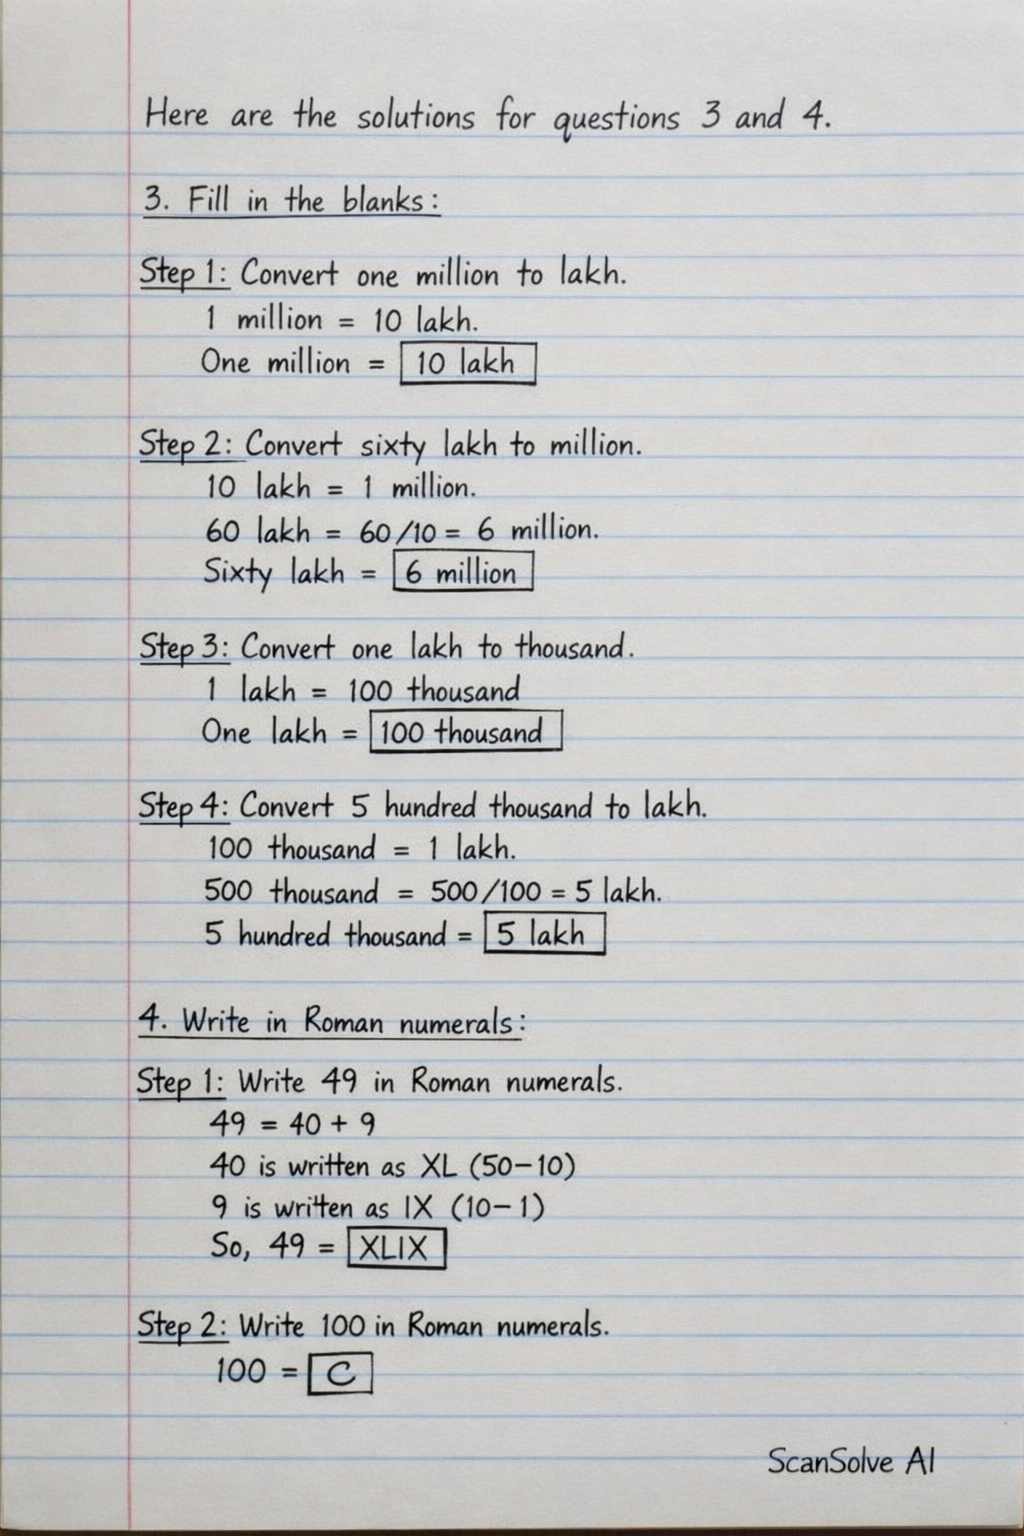 Here are the solutions for questions 3 and 4.
3. Fill in the blanks:
Step 1: Convert one million to lakh.
1 million = 10 lakh.
One million = 10 lakh
Step 2: Convert sixty lakh to million.
10 lakh = 1 million.
60 lakh = 60/10 = 6 million.
Sixty lakh = 6 million
Step 3: Convert one lakh to thousand.
1 lakh = 100 thousand
One lakh = 100 thousand
Step 4: Convert 5 hundred thousand to lakh.
100 thousand = 1 lakh.
500 thousand = 500/100 = 5 lakh.
5 hundred thousand = 5 lakh
4. Write in Roman numerals:
Step 1: Write 49 in Roman numerals.
49 = 40 + 9
40 is written as XL (50-10)
9 is written as IX (10-1)
So, 49 = XLIX
Step 2: Write 100 in Roman numerals.
100 = C
ScanSolve AI